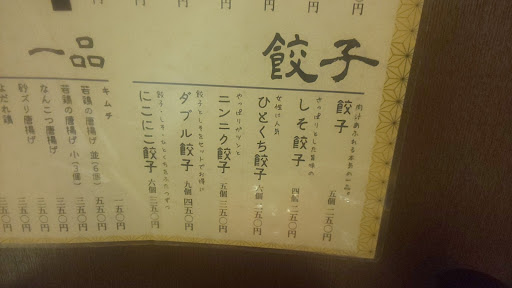 餃子
肉汁あふれる本気の一品!!
餃子 五個 二五〇円
さっぱりとした旨味の
しそ餃子 四個 二五〇円
女性に人気
ひとくち餃子 六個 二五〇円
やっぱりガツンと
ニンニク餃子 五個 三五〇円
餃子としそをセットでお得に
ダブル餃子 九個 四五〇円
餃子・しそ・ひとくちを三つずつ
にこにこ餃子 九個 三五〇円
一品
キムチ 一五〇円
若鶏の唐揚げ 並(6個) 五五〇円
若鶏の唐揚げ 小(3個) 三五〇円
なんこつ唐揚げ 三五〇円
砂ズリ唐揚げ 三五〇円
よだれ鶏